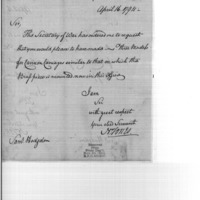 April 16 1794
Sir,
The Secretary of War has directed me to request
that you would please to have made in
for Cannon Carriages similar to that on which the
Brass piece is mounted now in this Office.
I am
Sir
with great respect
your obd. Servant
Saml Hodgdon